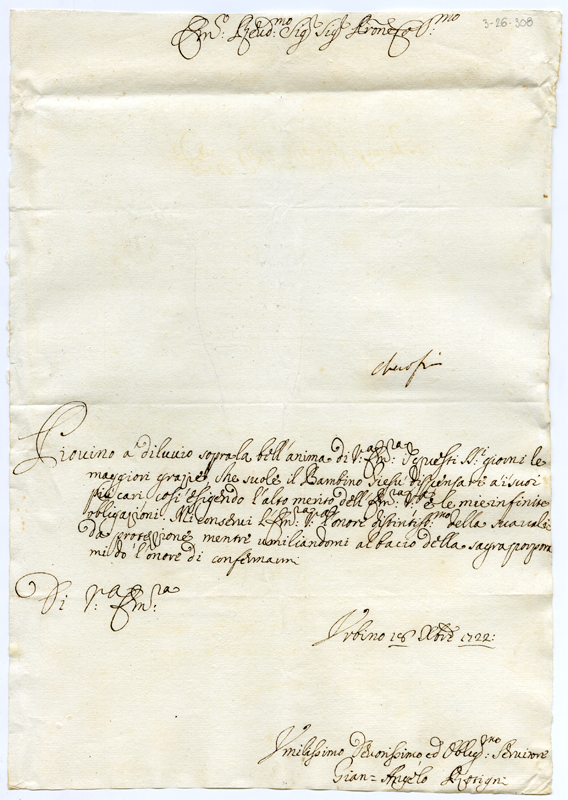 3-26-308
Em:o Reud:mo Sig:r Sig:r Prone Co:mo
Piouino a diluuio sopra la bell'anima di V:a Em:ra in questi SS:ti giorni le
maggiori grazie, che suole il Bambino Giesù dispensare a i suoi
più cari così esigendo l'alto merito dell'Em:za V:ra e le mie infinite
obligazioni. Mi conserui l'Em:za V:ra l'onore distintiss:mo della sua vali-
da protezzione mentre umiliandomi al bacio della sagra porpora
mi do l'onore di confermarmi
Di V:a Em:ra
Vrbino 18 Xbre 1722:
Vmilissimo Deuotissimo ed Obblig:mo Seruitore
Gian= Angelo